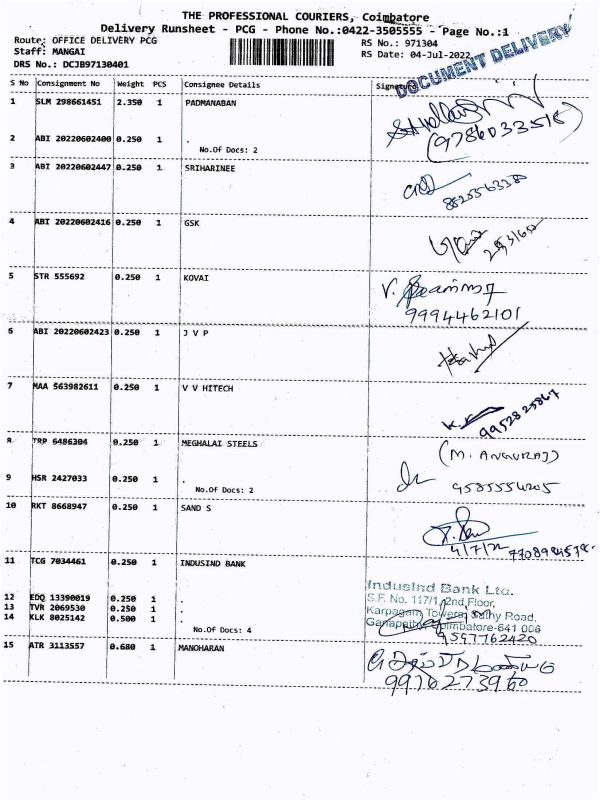 THE PROFESSIONAL COURIERS, Coimbatore
Delivery Runsheet - PCG - Phone No.:0422-3505555 - Page No.:1
Route: OFFICE DELIVERY PCG
RS No.: 971304
Staff: MANGAI
RS Date: 04-Jul-2022
DRS No.: DCJB97130401
DOCUMENT DELIVERY
S No Consignment No Weight PCS Consignee Details Signature
1 SLM 298661451 2.350 1 PADMANABAN
(9786033518)
2 ABI 20220602400 0.250 1 .
No.Of Docs: 2
3 ABI 20220602447 0.250 1 SRIHARINEE
4 ABI 20220602416 0.250 1 GSK
5 STR 555692 0.250 1 KOVAI
9994462101
6 ABI 20220602423 0.250 1 J V P
7 MAA 563982611 0.250 1 V V HITECH
9952825867
8 TRP 6486304 0.250 1 MEGHALAI STEELS
(M. ANGURAJ)
9 HSR 2427033 0.250 1 .
9585554205
No.Of Docs: 2
10 RKT 8668947 0.250 1 SAND S
4/7/22
11 TCG 7034461 0.250 1 INDUSIND BANK
IndusInd Bank Ltd.
12 EDQ 13390019 0.250 1 .
S.F. No. 117/1, 2nd Floor,
13 TVR 2069530 0.250 1 .
Karpagam Towers, Sathy Road,
14 KLK 8025142 0.500 1 .
Ganapathy, Coimbatore-641 006
No.Of Docs: 4
9597762420
15 ATR 3113557 0.680 1 MANOHARAN
9976273960